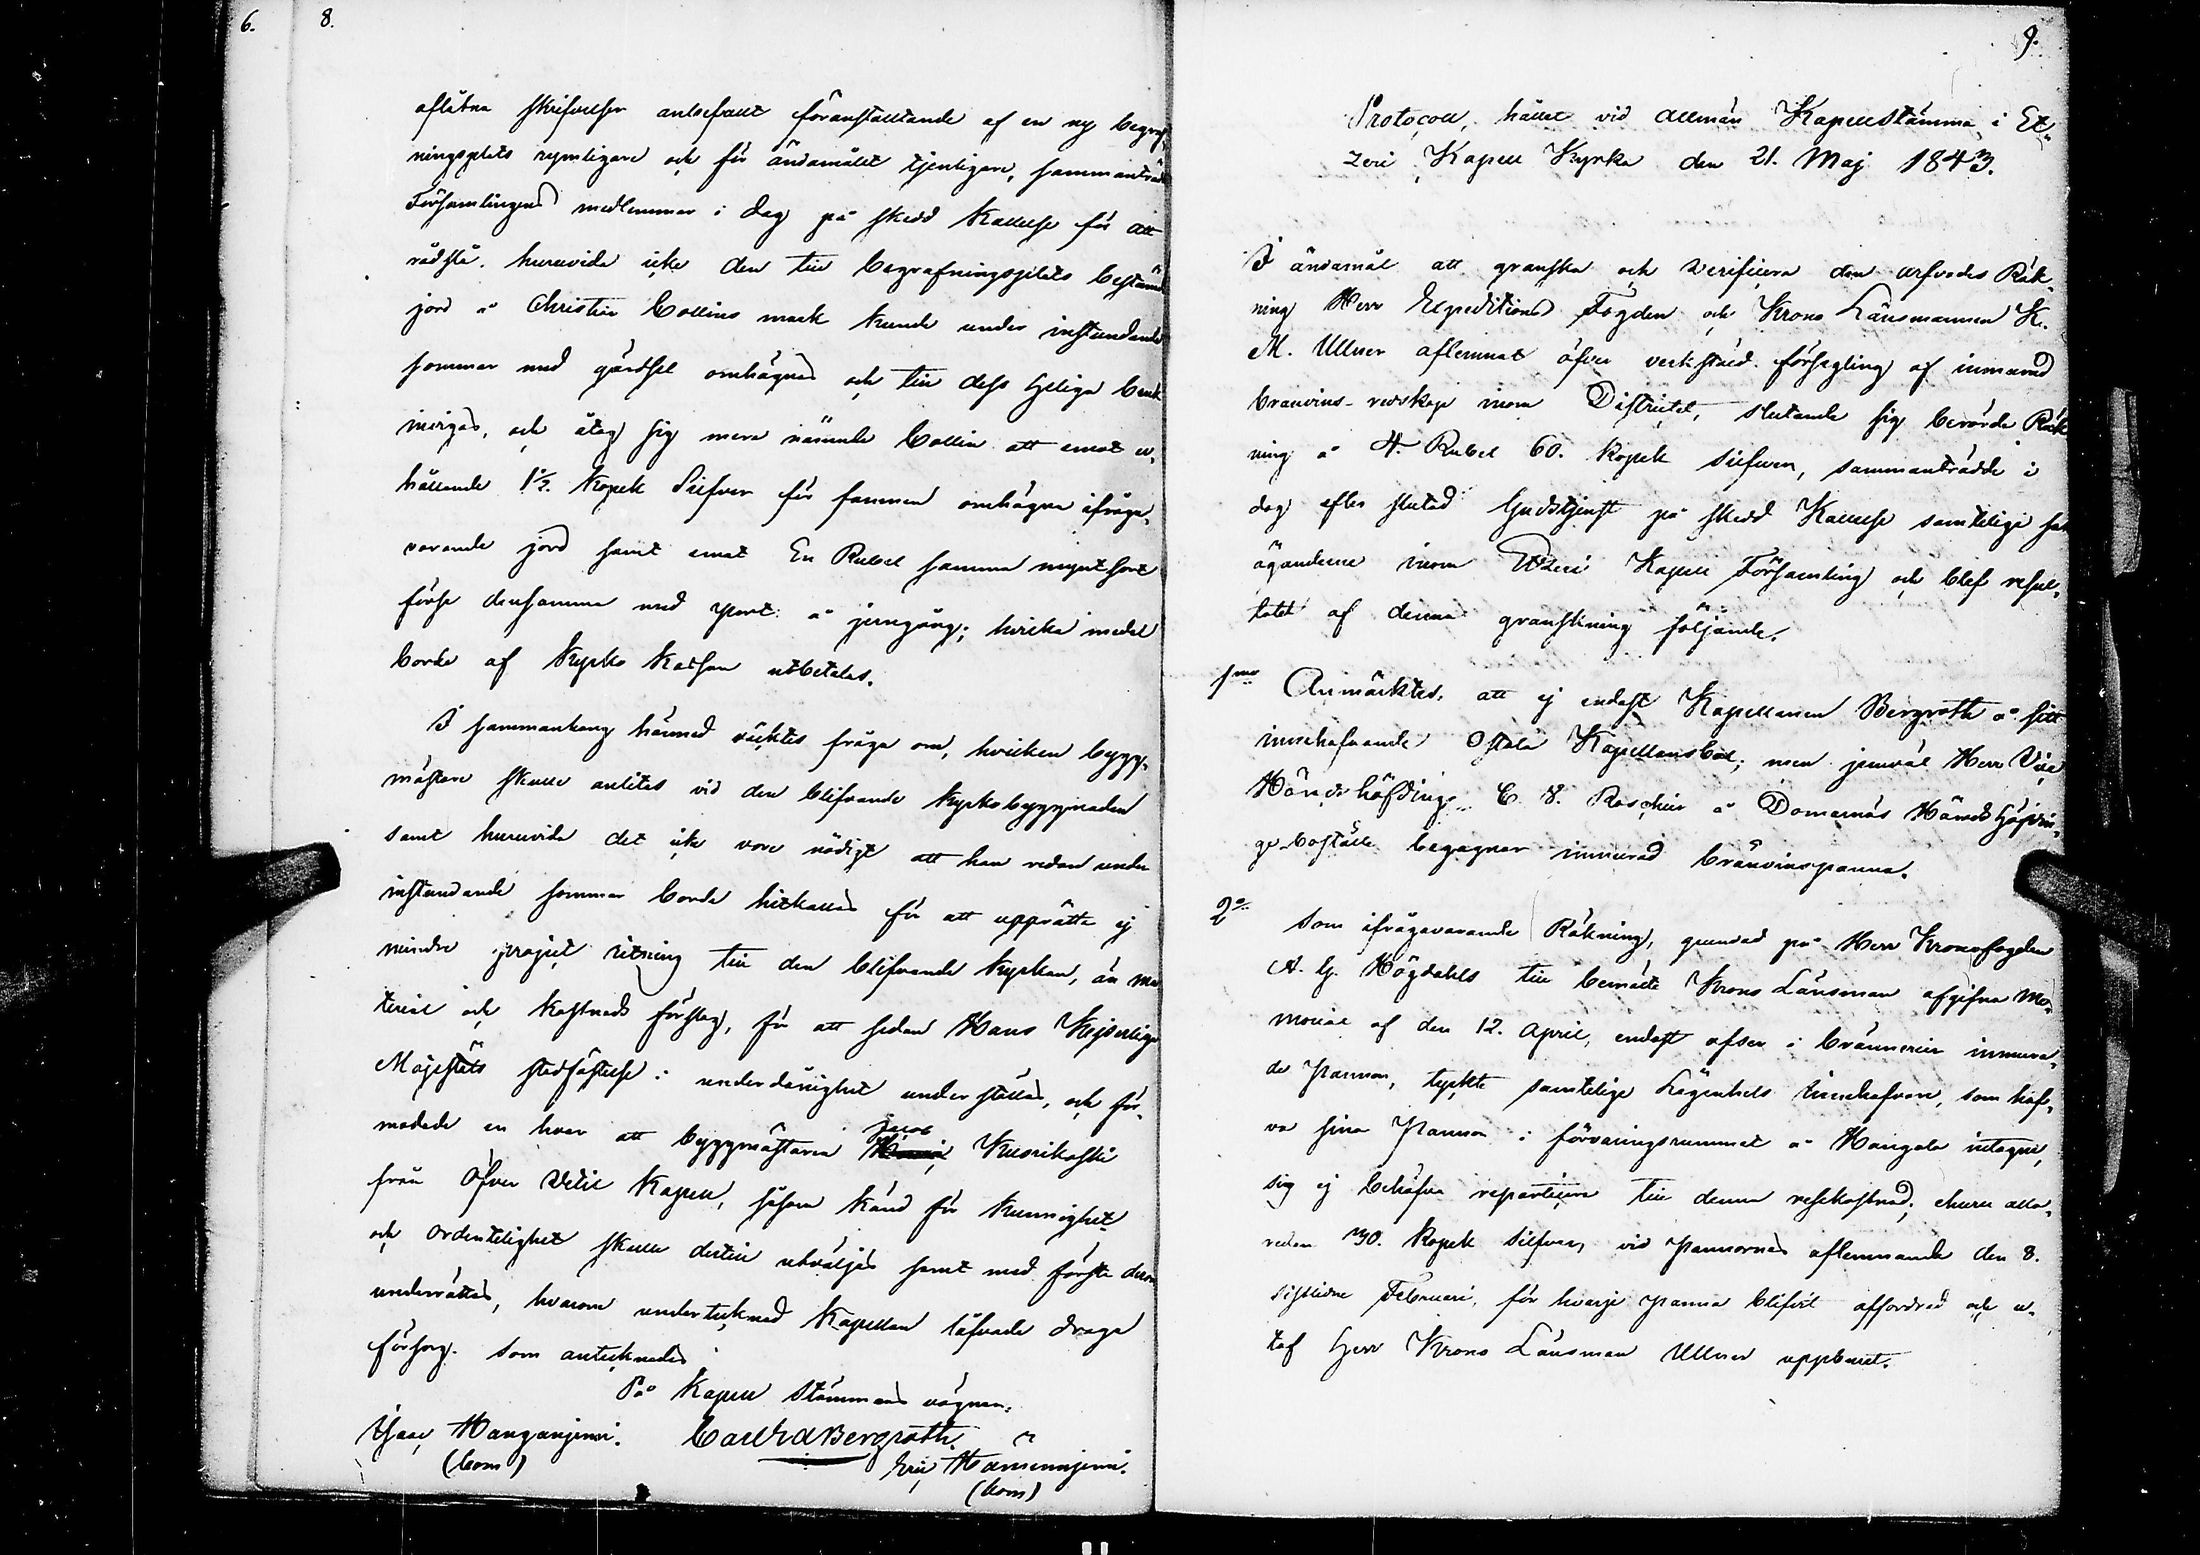 6.
8.
aflåtna skrifvelser anbefallt föranstalltande af en ny begraf-
ningsplats rymligare och för ändamålet tjenligare, sammanträdde
Församlingens medlemmar i dag på skedd Kallelse för att
rådslå, huruvida icke den till begrafningsplats bestämda
jord å Christian Collins mark kunde under instundande
sommar med gärdsel omhägnas och till dess heliga bruk
invigas, och åtog sig mera nämnde Collin att emot er-
hållande 1½ Kopek Silfver för famnen omhägna ifråga-
varande jord samt emot En Rubel samma myntsort
förse densamma med port å jerngång; hvilka medel
borde af Kyrko Kassan utbetalas.
I sammanhang härmed väcktes fråga om, hvilken bygg-
mästare skulle anlitas vid den blifvande Kyrkobyggnaden
samt huruvida det icke vore nödigt att han redan under
instundande sommar borde hitkallas för att upprätta ej
mindre project ritning till den blifvande Kyrkan, än ma-
terial och Kostnads förslag, för att sedan Hans Kejserliga
Majestäts stadfästelse i underdånighet underställas, och för-
modade en hvar att byggmästaren Jacob Kuorikoski
från Öfver Vetil Kapell, såsom känd för kunnighet
och ordentelighet skulle dertill utväljas samt med första derom
underrättas, hvarom undertecknad Kapellan låfvade draga
försorg. Som antecknades
På Kapell Stämmans vägnar:
Isaac Hanganjemi. Carl Ed Bergroth.
(bom)
Eric Hämeenniemi.
(bom)
9.
Protocoll, hållet vid allmän Kapellstämma i Et-
zeri Kapell Kyrka den 21. Maj 1843.
I ändamål att granska och verificera den arfvodes Räk-
ning Herr Expeditions Fogden och Krono Länsmannen K.
M. Ullner aflemnat öfver verkställd försegling af inmurad
bränvins-redskap inom Districtet, slutande sig berörde Räk-
ning å 4. Rubel 60. Kopek silfver, sammanträdde i
dag efter slutad Gudstjenst på skedd Kallelse samtelige sak-
äganderne inom Etzeri Kapell Församling och blef resul-
tatet af denna granskning följande.
1mo Anmärktes, att ej endast Kapellanen Bergroth å sitt
innehafvande Ostola Kapellansbol, men jemväl Herr Vice
Häradshöfding C. F. Roschier å Domarnäs Häradshöfdin-
ge boställe begagnar inmurad bränvinspanna.
2o Som ifrågavarande Räkning, grundad på Herr Kronofogden
A. G. Högdahls till bemälte Krono Länsman afgifna Me-
morial af den 12. April, endast afser i brännerier inmura-
de Pannor, tyckte samtelige Lägenhets innehafvare, som haf-
va sina Pannor i förvaringsrummet å Hangala intagne,
sig ej behöfva reparticiera till denna resekostnad; ehuru alla-
redan 30. Kopek silfver, vid pannornas aflemnande den 8.
sistledne Februari, för hvarje panna blifvit affordrad och u-
taf Herr Krono Länsman Ullner uppburet.